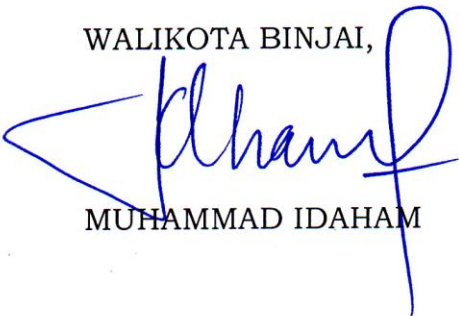 WALIKOTA BINJAI,
Idham
MUHAMMAD IDAHAM